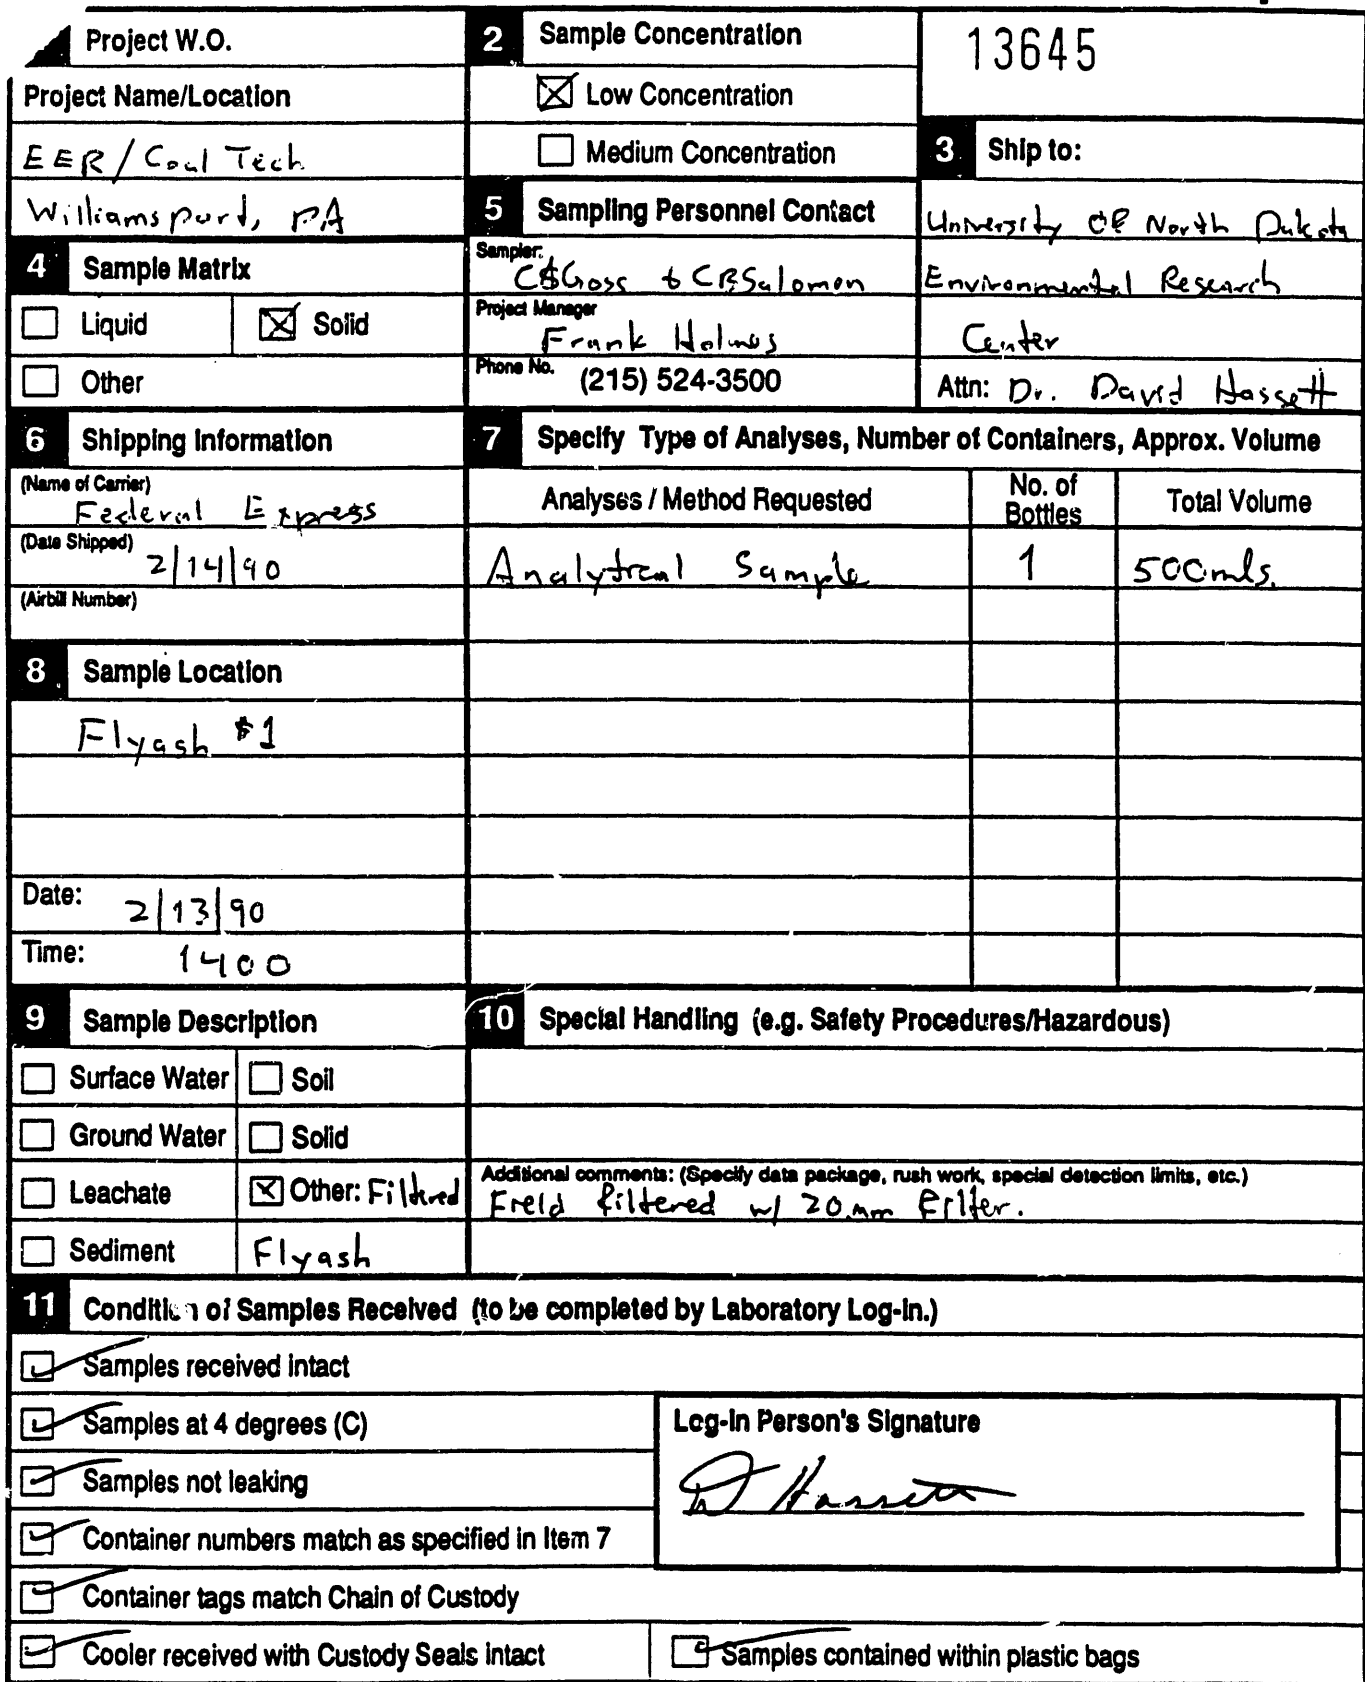 Project W.O.
Project Name/Location
EER/Coal Tech
Williamsport, PA
2 Sample Concentration
Low Concentration
Medium Concentration
13645
3 Ship to:
University of North Dakota
Environmental Research
Center
Attn: Dr. David Hassett
4 Sample Matrix
Liquid
Solid
Other
5 Sampling Personnel Contact
Sampler:
& CBSalomon
Project Manager
Frank Holmes
Phone No. (215) 524-3500
6 Shipping Information
(Name of Carrier)
Federal Express
(Date Shipped)
2/14/90
(Airbill Number)
7 Specify Type of Analyses, Number of Containers, Approx. Volume
Analyses / Method Requested
No. of
Bottles
Total Volume
Analytical Sample 1 500mls.
8 Sample Location
Flyash #1
Date: 2/13/90
Time: 1400
9 Sample Description
Surface Water
Soil
Ground Water
Solid
Leachate
Other: Filtered
Sediment
Flyash
10 Special Handling (e.g. Safety Procedures/Hazardous)
Additional comments: (Specify data package, rush work, special detection limits, etc.)
Field filtered w/ 20 filter.
11 Condition of Samples Received (to be completed by Laboratory Log-in.)
Samples received intact
Samples at 4 degrees (C)
Samples not leaking
Container numbers match as specified in Item 7
Container tags match Chain of Custody
Cooler received with Custody Seals intact
Samples contained within plastic bags
Log-in Person's Signature
D Hassett